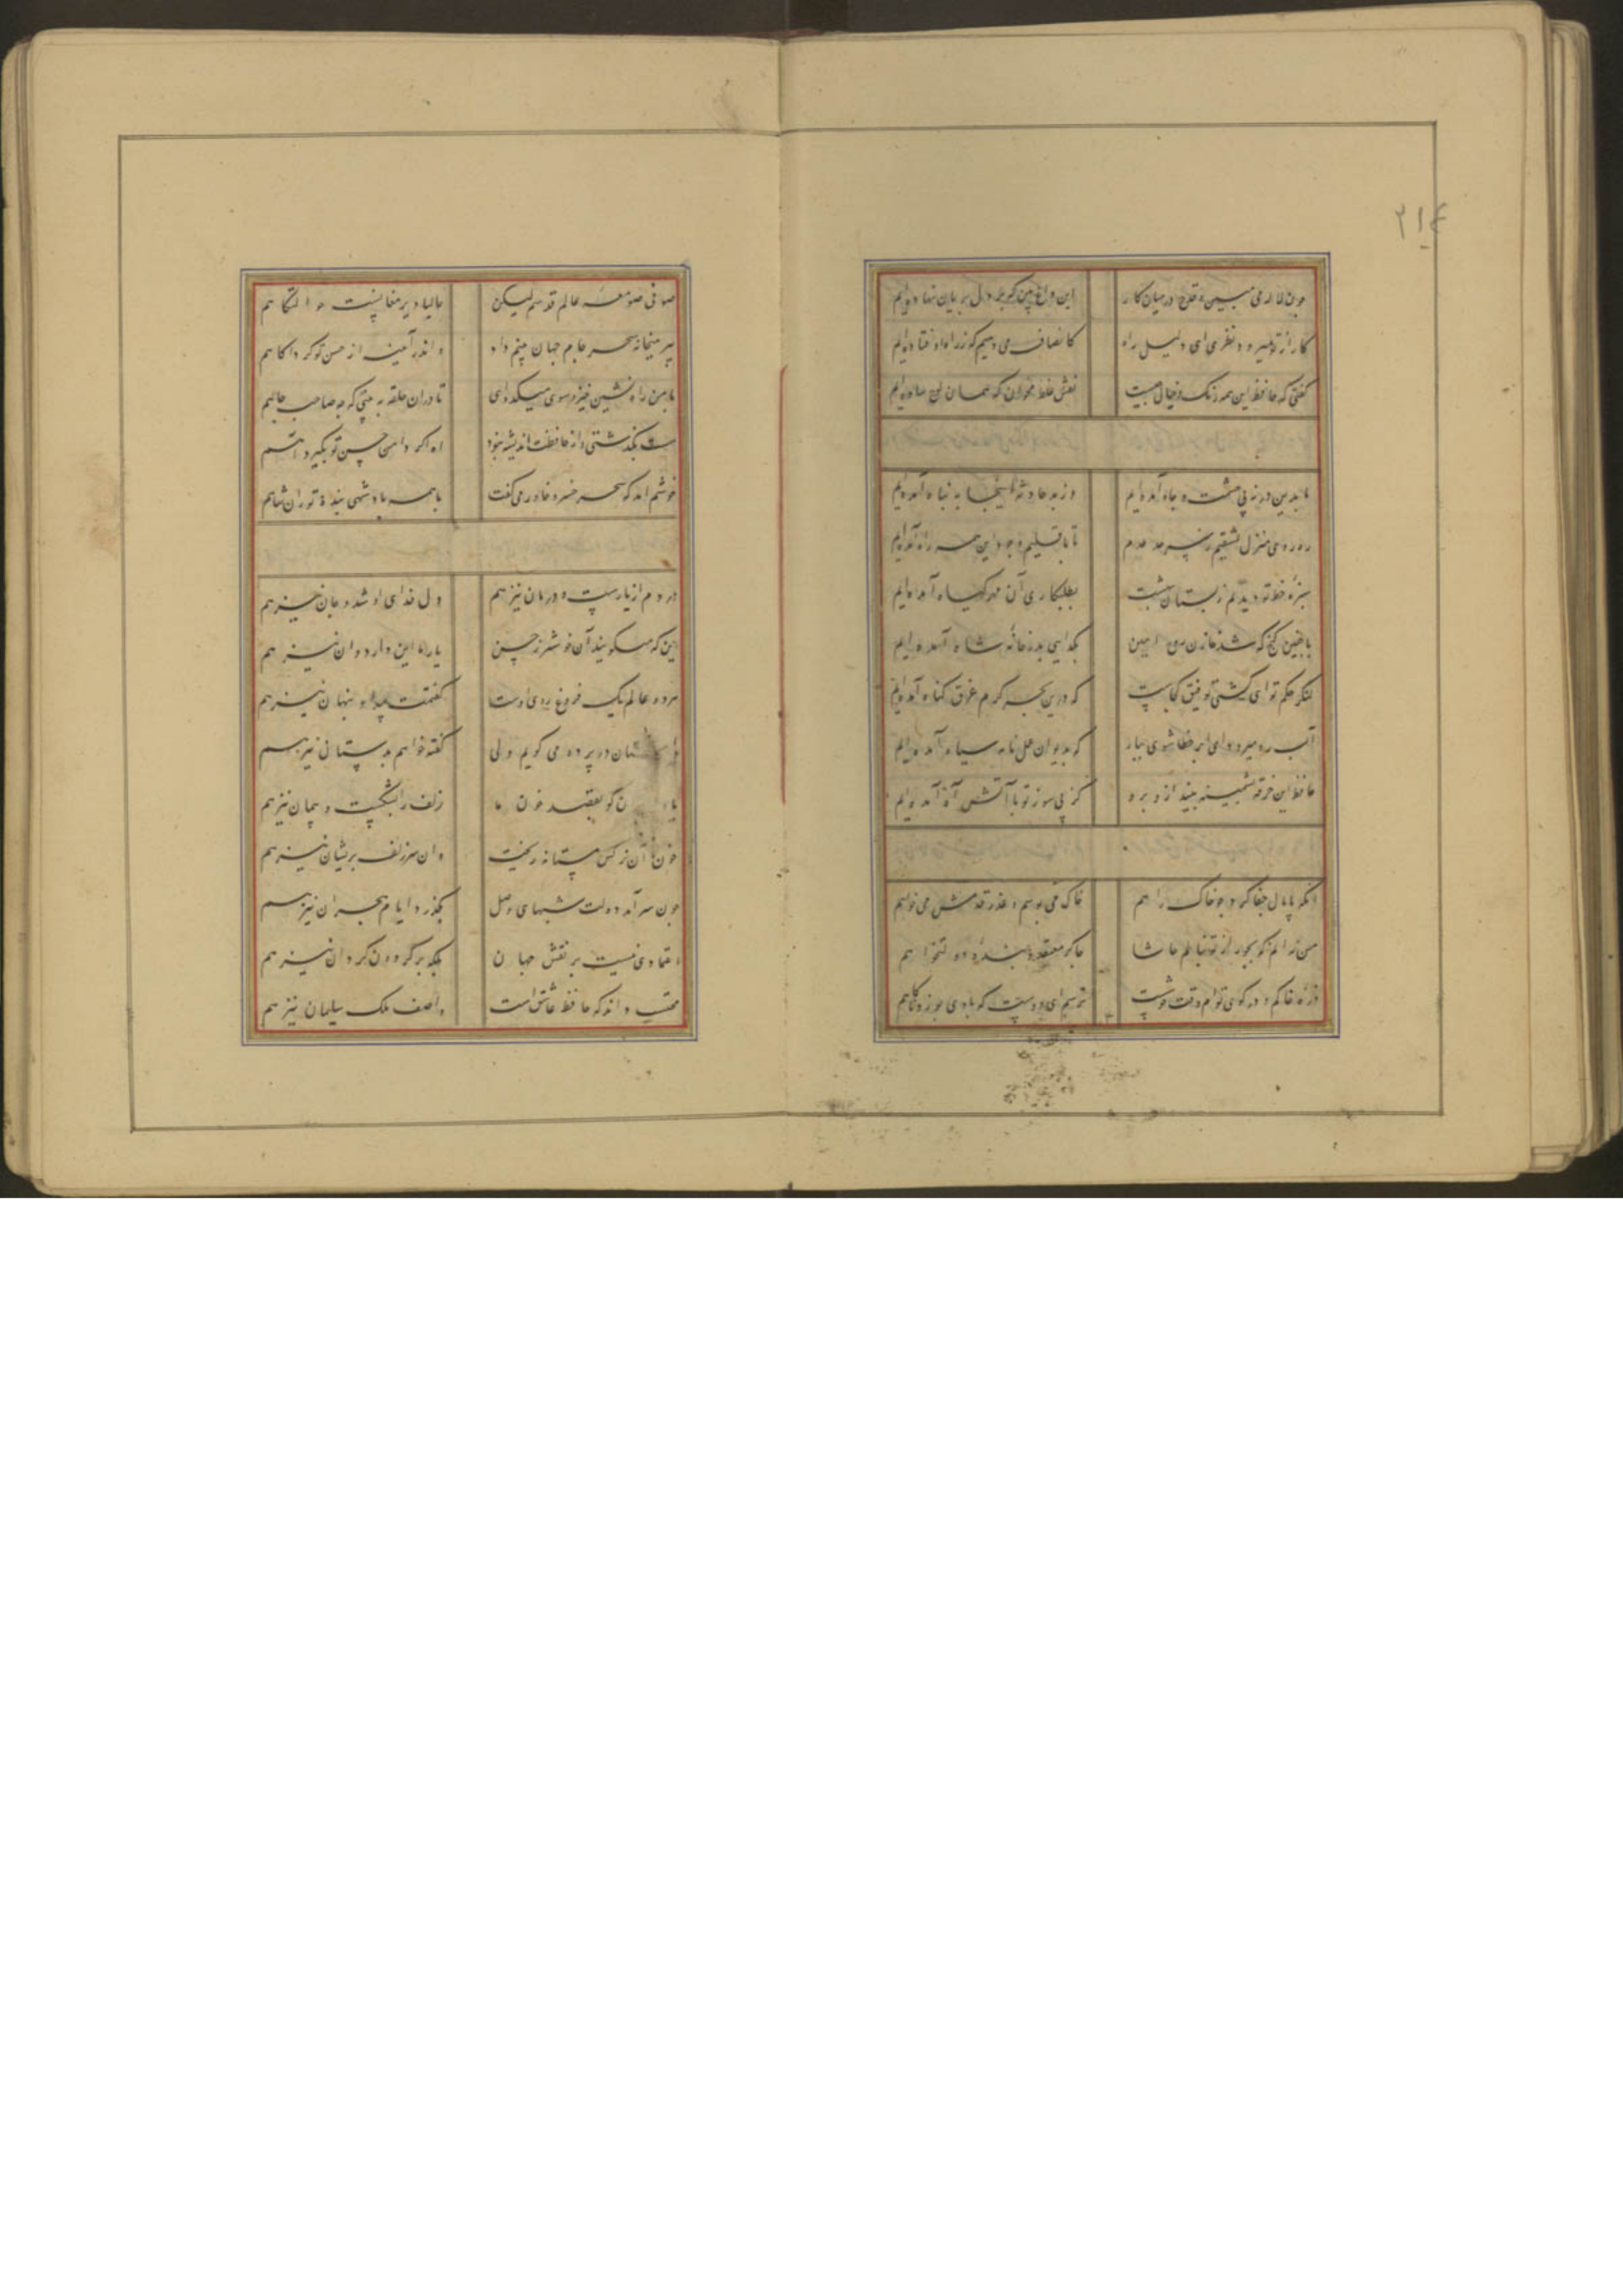 ۲۱۴
چون لاله می مبین و قدح در میان کار این داغ بین که بر دل بریان نهاده‌ایم
کار از تو میرود نظری ای دلیل راه کانصاف می‌دهیم که از راه اوفتاده‌ایم
گفتی که حافظ این همه رنگ و خیال چیست نقش غلط مخوان که همان لوح ساده‌ایم
ما بدین در نه پی حشمت و جاه آمده‌ایم وز بد حادثه اینجا به پناه آمده‌ایم
ره رو منزل عشقیم ز سرحد عدم تا باقلیم وجود این همه راه آمده‌ایم
سبزه خط تو دیدیم ز بستان بهشت بطلبکاری آن مهر گیاه آمده‌ایم
با چنین گنج که شد خازن روح امین بگدایی بدر خانه شاه آمده‌ایم
لنگر حکم تو ای کشتی توفیق کجاست که درین بحر کرم غرق گناه آمده‌ایم
آب رو میرود ای ابر خطاشوی ببار که بدیوان عمل نامه سیاه آمده‌ایم
حافظ این خرقه پشمینه بینداز و برو کز پی سوز تو با آتش آه آمده‌ایم
آنکه پامال جفا کرد چو خاک راهم خاک می بوسم و عذر قدمش می خواهم
من نه آنم که بجور از تو بنالم حاشا چاکر معتقد و بنده دولتخواهم
ذره خاکم و در کوی توام وقت خوشست ترسم ای دوست که بادی ببرد ناگاهم
صوفی صومعه عالم قدسم لیکن حالیا دیر مغانست حوالتگاهم
پیر میخانه سحر جام جهان بینم داد و اندر آینه از حسن تو کرد آگاهم
با من راه نشین خیز و سوی میکده آی تا در آن حلقه ببینی که چه صاحب جاهم
مست بگذشتی و از حافظت اندیشه نبود آه اگر دامن حسن تو بگیرد آهم
خوشم آمد که سحر خسرو خاور می گفت با همه پادشهی بنده توران شاهم
دردم از یارست و درمان نیز هم دل فدای او شد و جان نیز هم
این که میگویند آن خوشتر ز حسن یار ما این دارد و آن نیز هم
هر دو عالم یک فروغ روی اوست گفتمت پیدا و پنهان نیز هم
داستان در پرده می گویم ولی گفته خواهم بدستانی نیز هم
کو بقصد خون ما زلف را بشکست و پیمان نیز هم
خون ما آن نرگس مستانه ریخت وان سر زلف پریشان نیز هم
چون سر آمد دولت شبهای وصل بگذرد ایام هجران نیز هم
اعتمادی نیست بر نقش جهان بلکه بر گردون گردان نیز هم
محتسب داند که حافظ عاشق است واصف ملک سلیمان نیز هم